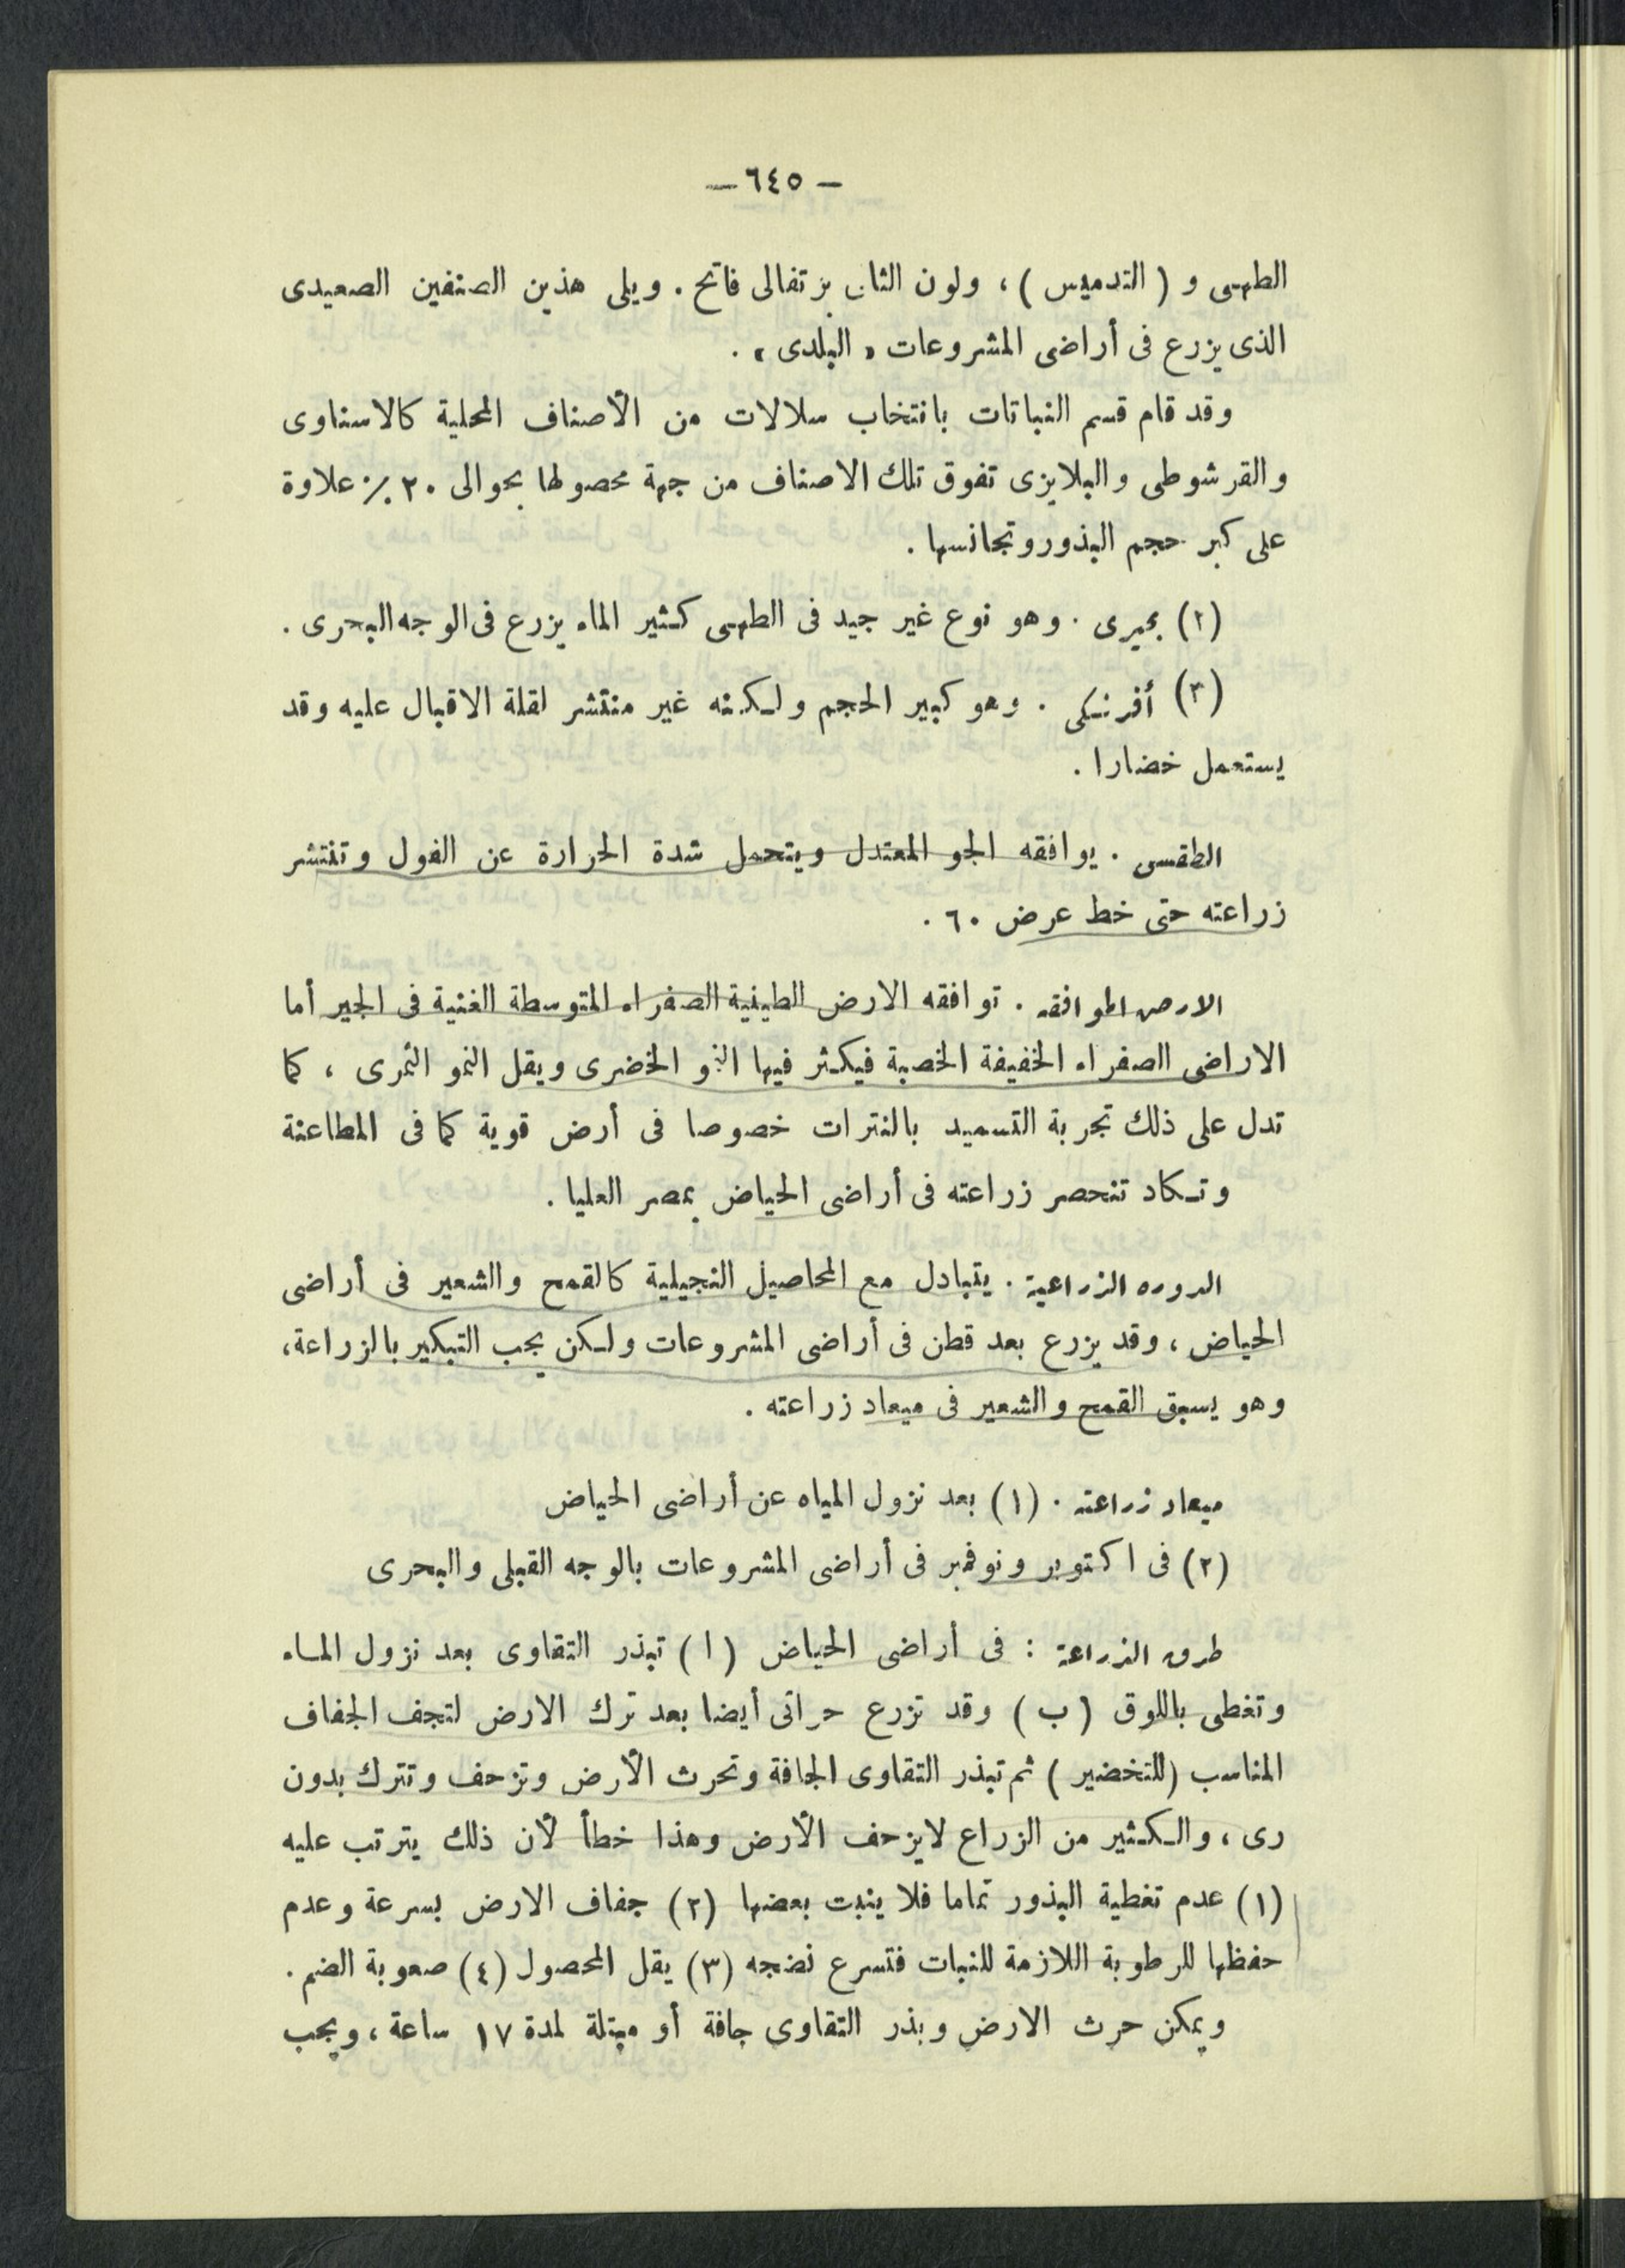 — ٦٤٥ —
الطهى و ( التدميس ) ، ولون الثانى برتقالى فاتح . ويلى هذين الصنفين الصعيدى
الذى يزرع فى أراضى المشروعات « البلدى » .
وقد قام قسم النباتات بانتخاب سلالات من الأصناف المحلية كالاسناوى
والقرشوطى والبلايزى تفوق تلك الاصناف من جهة محصولها بحوالى ٢٠ ٪ علاوة
على كبر حجم البذور وتجانسها .
(٢) بحيرى . وهو نوع غير جيد فى الطهى كثير الماء يزرع فى الوجه البحرى .
(٣) أفرنكى . وهو كبير الحجم ولكنه غير منتشر لقلة الاقبال عليه وقد
يستعمل خضارا .
الطقس . يوافقه الجو المعتدل ويتحمل شدة الحرارة عن الفول وتنتشر
زراعته حتى خط عرض ٦٠ .
الارض الموافقة . توافقه الارض الطينية الصفراء المتوسطة الغنية فى الجير أما
الاراضى الصفراء الخفيفة الخصبة فيكثر فيها النمو الخضرى ويقل النمو الثمرى ، كما
تدل على ذلك تجربة التسميد بالنترات خصوصا فى أرض قوية كما فى المطاعنة
وتكاد تنحصر زراعته فى أراضى الحياض بمصر العليا .
الدورة الزراعية . يتبادل مع المحاصيل النجيلية كالقمح والشعير فى أراضى
الحياض ، وقد يزرع بعد قطن فى أراضى المشروعات ولكن يجب التبكير بالزراعة ،
وهو يسبق القمح والشعير فى ميعاد زراعته .
ميعاد زراعته . (١) بعد نزول المياه عن أراضى الحياض
(٢) فى اكتوبر ونوفمبر فى أراضى المشروعات بالوجه القبلى والبحرى
طرق الزراعة : فى أراضى الحياض ( ا ) تبذر التقاوى بعد نزول الماء
وتغطى باللوق ( ب ) وقد تزرع حراتى أيضا بعد ترك الارض لتجف الجفاف
المناسب ( للتخضير ) ثم تبذر التقاوى الجافة وتحرث الأرض وتزحف وتترك بدون
رى ، والكثير من الزراع لايزحف الأرض وهذا خطأ لأن ذلك يترتب عليه
(١) عدم تغطية البذور تماما فلا ينبت بعضها (٢) جفاف الارض بسرعة وعدم
حفظها للرطوبة اللازمة للنبات فتسرع نضجه (٣) يقل المحصول (٤) صعوبة الضم .
ويمكن حرث الارض وبذر التقاوى جافة أو مبتلة لمدة ١٧ ساعة ، ويجب